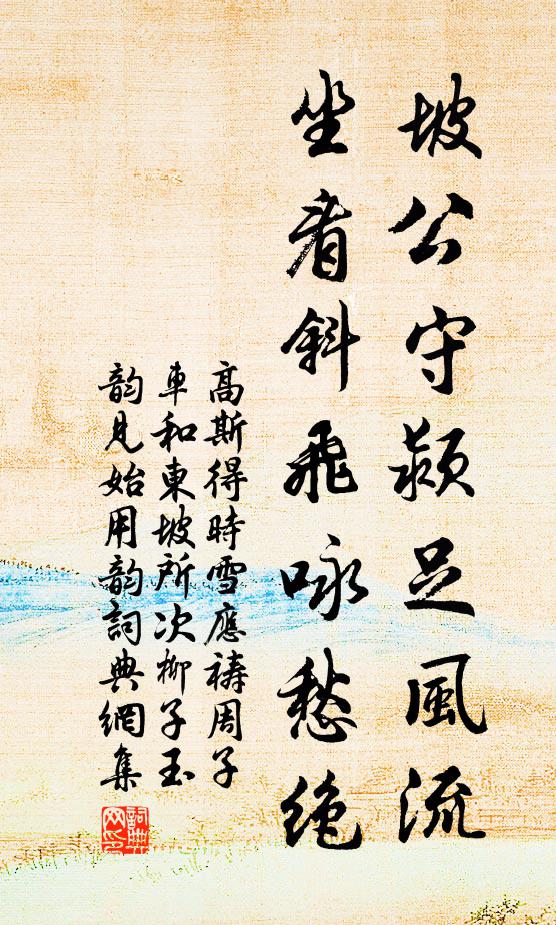 坡公守潁足風流
坐看斜飛咏愁絶
高斯得時雪應禱周子
車和東坡所次柳子玉
韵見始用韵詞典網集
詞典網印